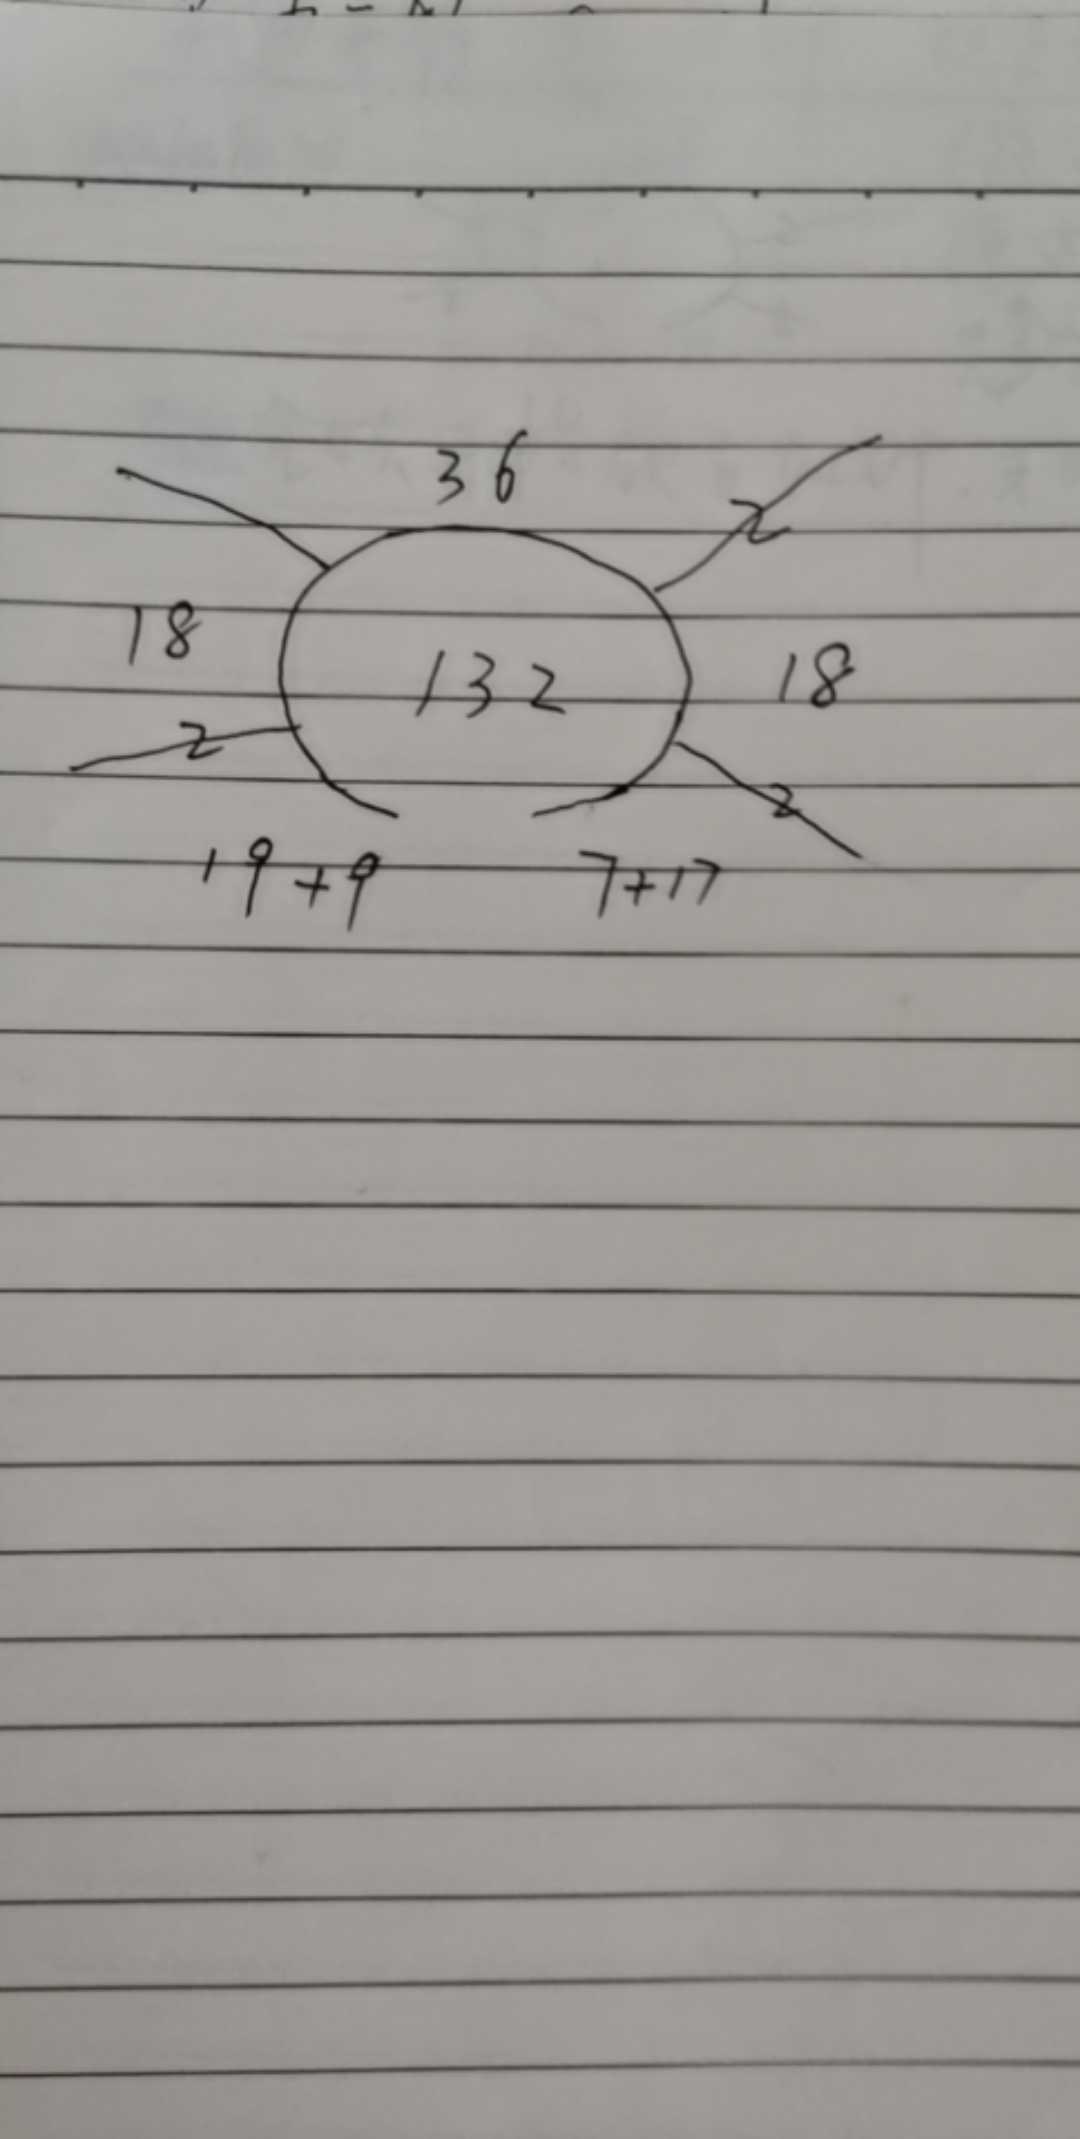 36
2
18
132
18
2
2
19+9
7+17